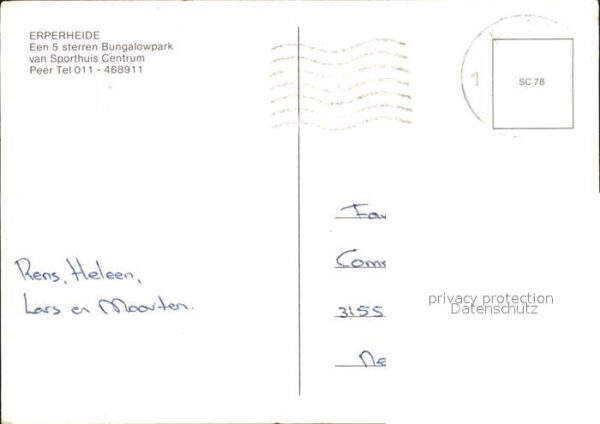 ERPERHEIDE
Een 5 sterren Bungalowpark
van Sporthuis Centrum
Peer Tel 011 - 468911
1
SC 78
Rens, Heleen,
Lars en Maarten.
Fa
Com
3155
Ne
privacy protection
Datenschutz